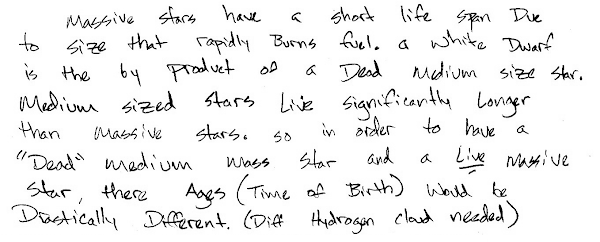 Massive stars have a short life span Due
to size that rapidly Burns fuel. a white Dwarf
is the by product of a Dead medium size star.
Medium sized stars Live significantly Longer
than massive stars. so in order to have a
"Dead" medium mass star and a Live massive
star, there Ages (Time of Birth) would be
Drastically Different. (Diff Hydrogen cloud needed)